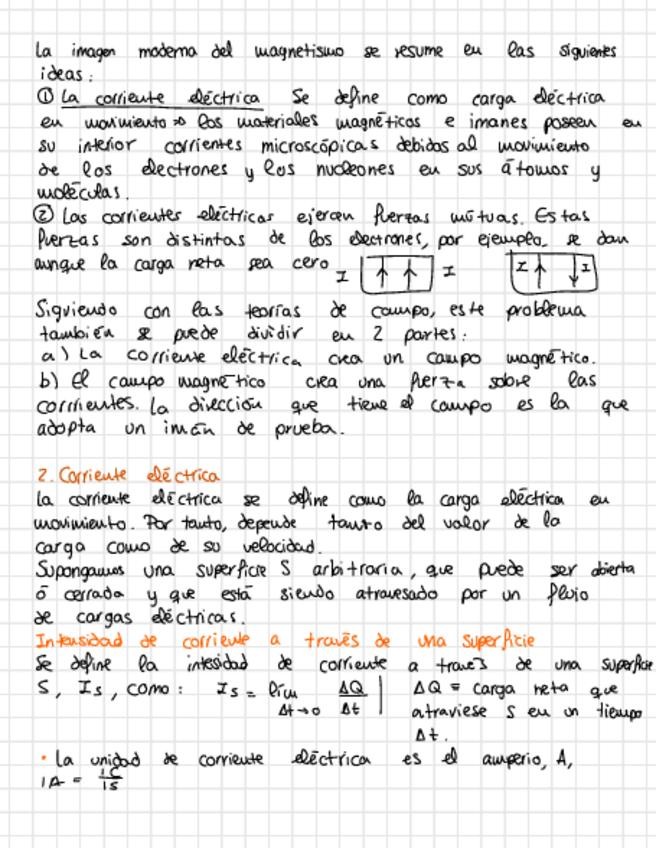 La imagen moderna del magnetismo se resume en las siguientes
ideas:
① La corriente eléctrica Se define como carga eléctrica
en movimiento ⇒ los materiales magnéticos e imanes poseen en
su interior corrientes microscópicas debidas al movimiento
de los electrones y los nucleones en sus átomos y
moléculas.
② Las corrientes eléctricas ejercen fuerzas mútuas. Estas
fuerzas son distintas de los electrones, por ejemplo, se dan
aunque la carga neta sea cero I ↑ ↑ I I ↑ ↓ I
Siguiendo con las teorías de campo, este problema
también se puede dividir en 2 partes:
a) La corriente eléctrica crea un campo magnético.
b) El campo magnético crea una fuerza sobre las
corrientes. La dirección que tiene el campo es la que
adopta un imán de prueba.
2. Corriente eléctrica
La corriente eléctrica se define como la carga eléctrica en
movimiento. Por tanto, depende tanto del valor de la
carga como de su velocidad.
Supongamos una superficie S arbitraria, que puede ser abierta
ó cerrada y que está siendo atravesado por un flujo
de cargas eléctricas.
Intensidad de corriente a través de una superficie
Se define la intesidad de corriente a través de una superficie
S, Is, como: Is = lím Δt→0 ΔQ/Δt | ΔQ = carga neta que
atraviese S en un tiempo
Δt.
• La unidad de corriente eléctrica es el amperio, A,
1A = 1C/1S